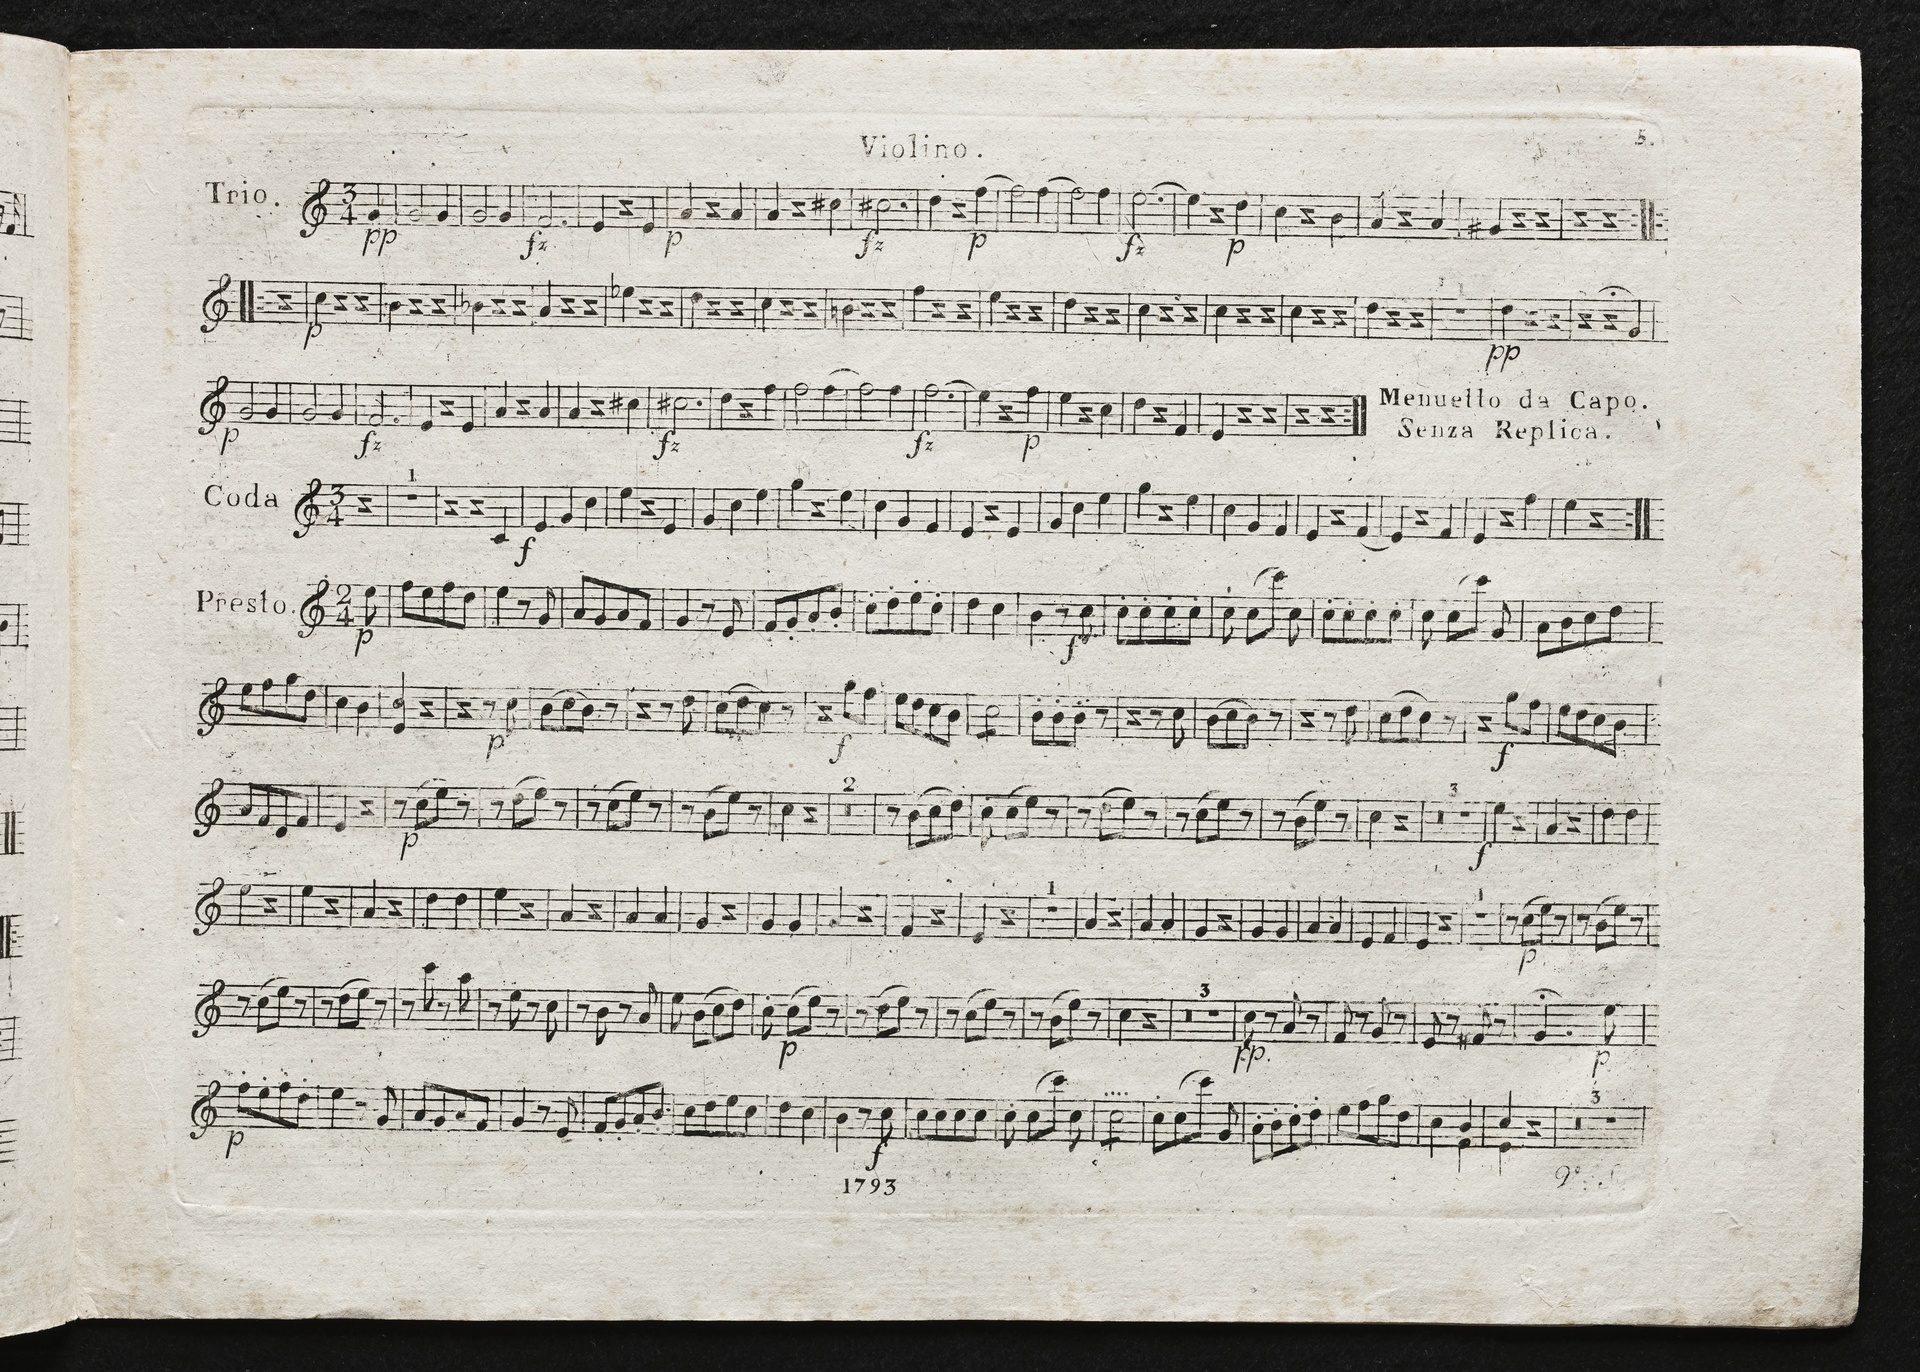 Violino.
5.
Trio.
3
4
pp
fz
p
fz
p
fz
p
p
pp
p
fz
fz
fz
p
Menuetto da Capo.
Senza Replica.
Coda
3
4
1
f
Presto.
2
4
p
f
p
f
f
2
3
p
f
1
1
p
3
p
pp.
p
3
p
f
1793